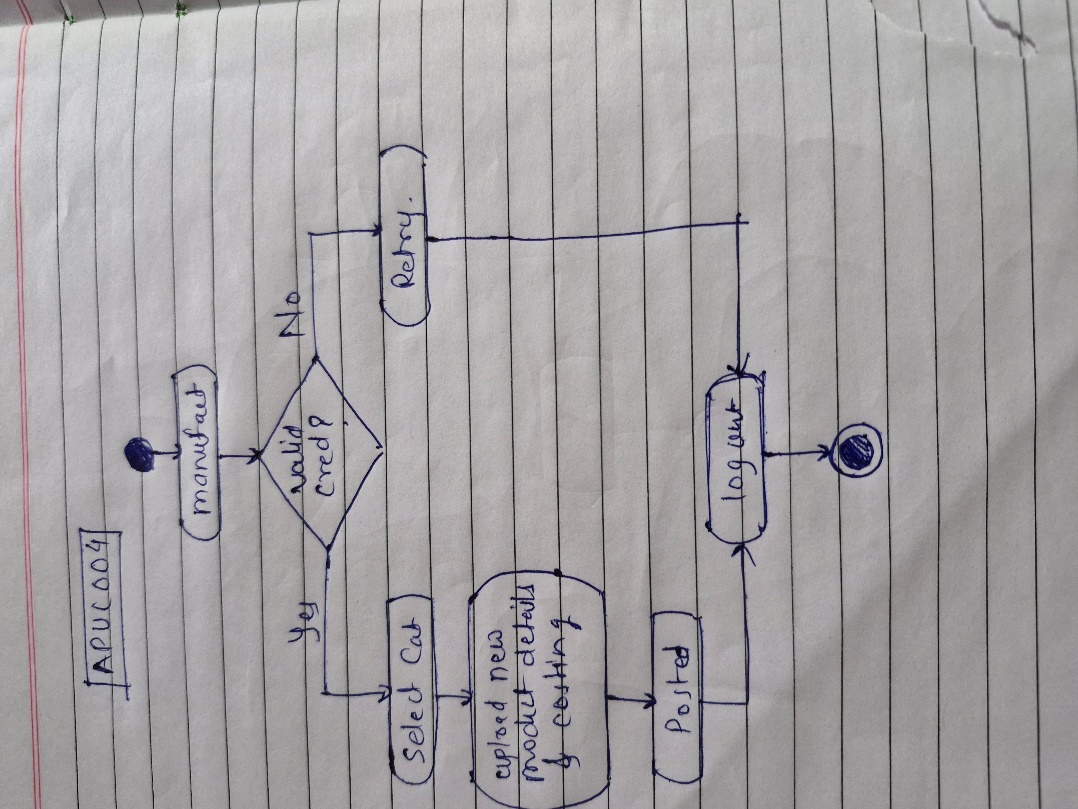 APUC004
manufact
valid
cred?
Yes
No
Select Cat
Retry.
upload new
product details
& costing
Posted
log out